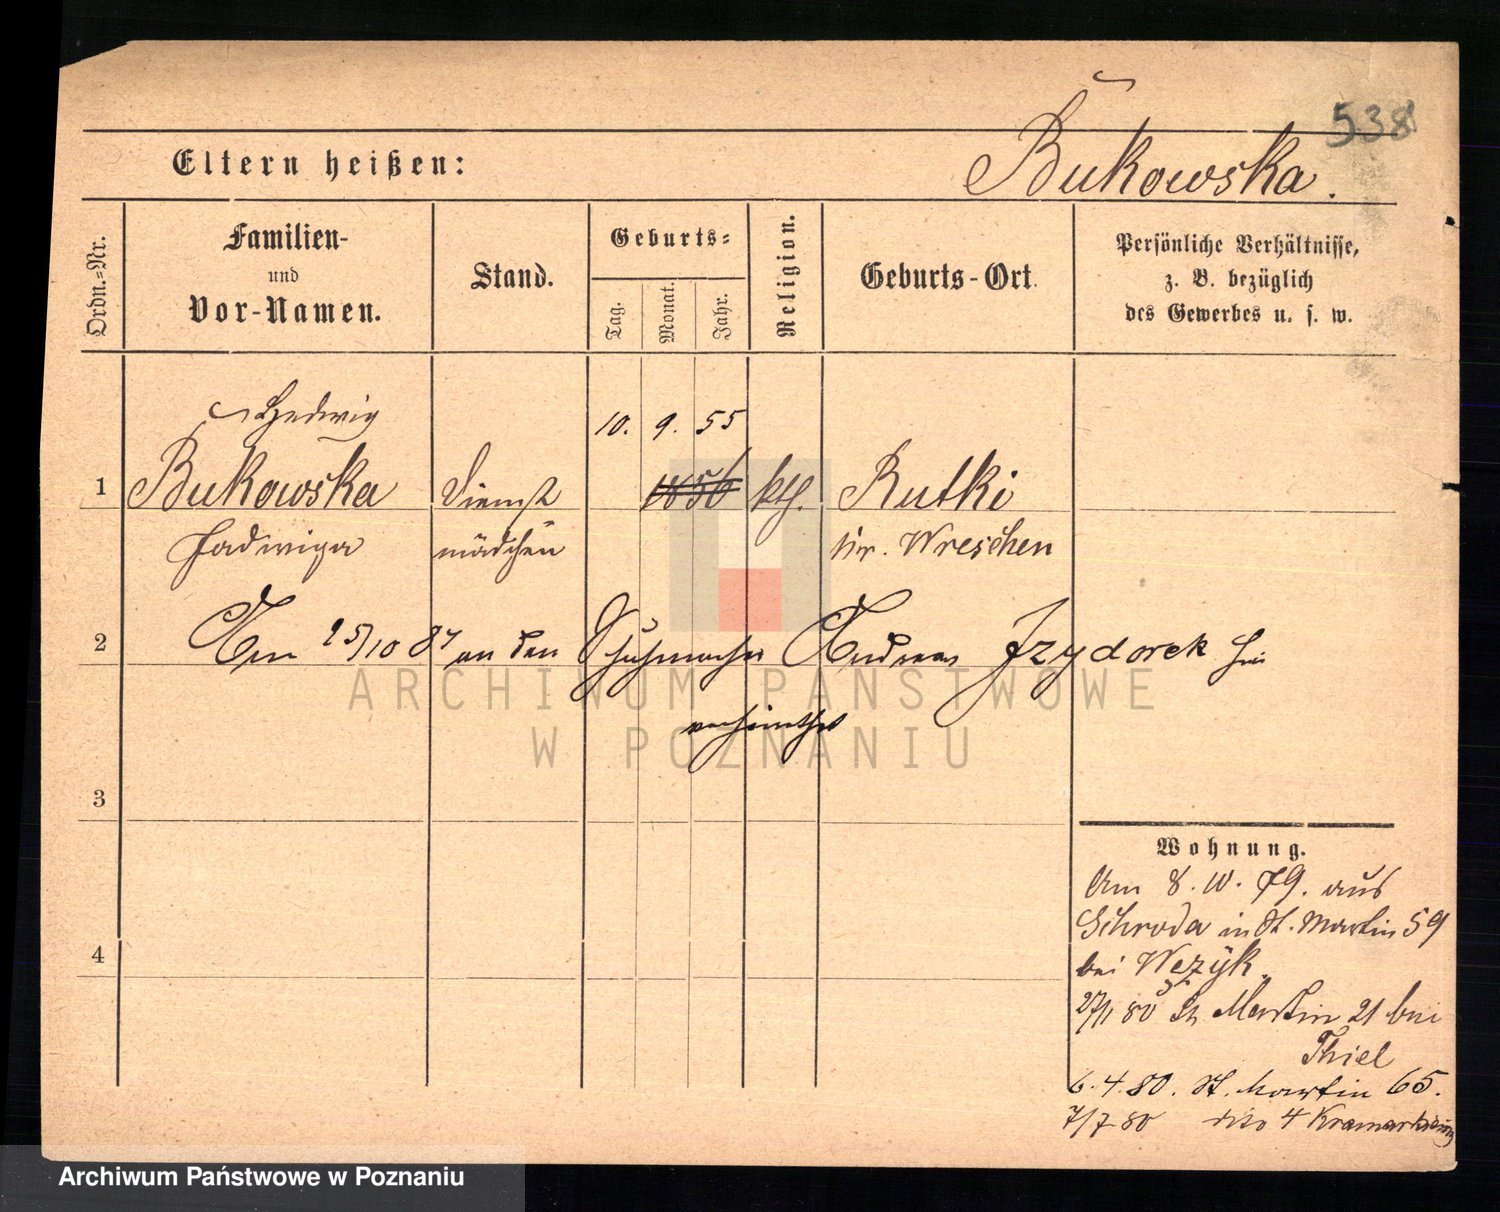 538
Bukowska.
Eltern heißen:
Ordn.=Nr.
Familien-
und
Vor-Namen.
Stand.
Geburts=
Tag.
Monat.
Jahr.
Religion.
Geburts-Ort.
Persönliche Verhältnisse,
z. B. bezüglich
des Gewerbes u. s. w.
Hedwig
10. 9. 55
1 Bukowska Dienst 1856 kth. Rutki
Jadwiga mädchen Kr. Wreschen
2 Am 25/10 87 an den Schuhmacher Andreas Izydorek hier
verheirathet
3
4
Wohnung.
Am 8. 10. 79. aus
Schroda in St. Martin 59
bei Wezyk.
27/1 80 St Martin 21 bei
Thiel
6. 4. 80. St. Martin 65.
7/7 80 dito 4
ARCHIWUM PAŃSTWOWE
W POZNANIU
Archiwum Państwowe w Poznaniu